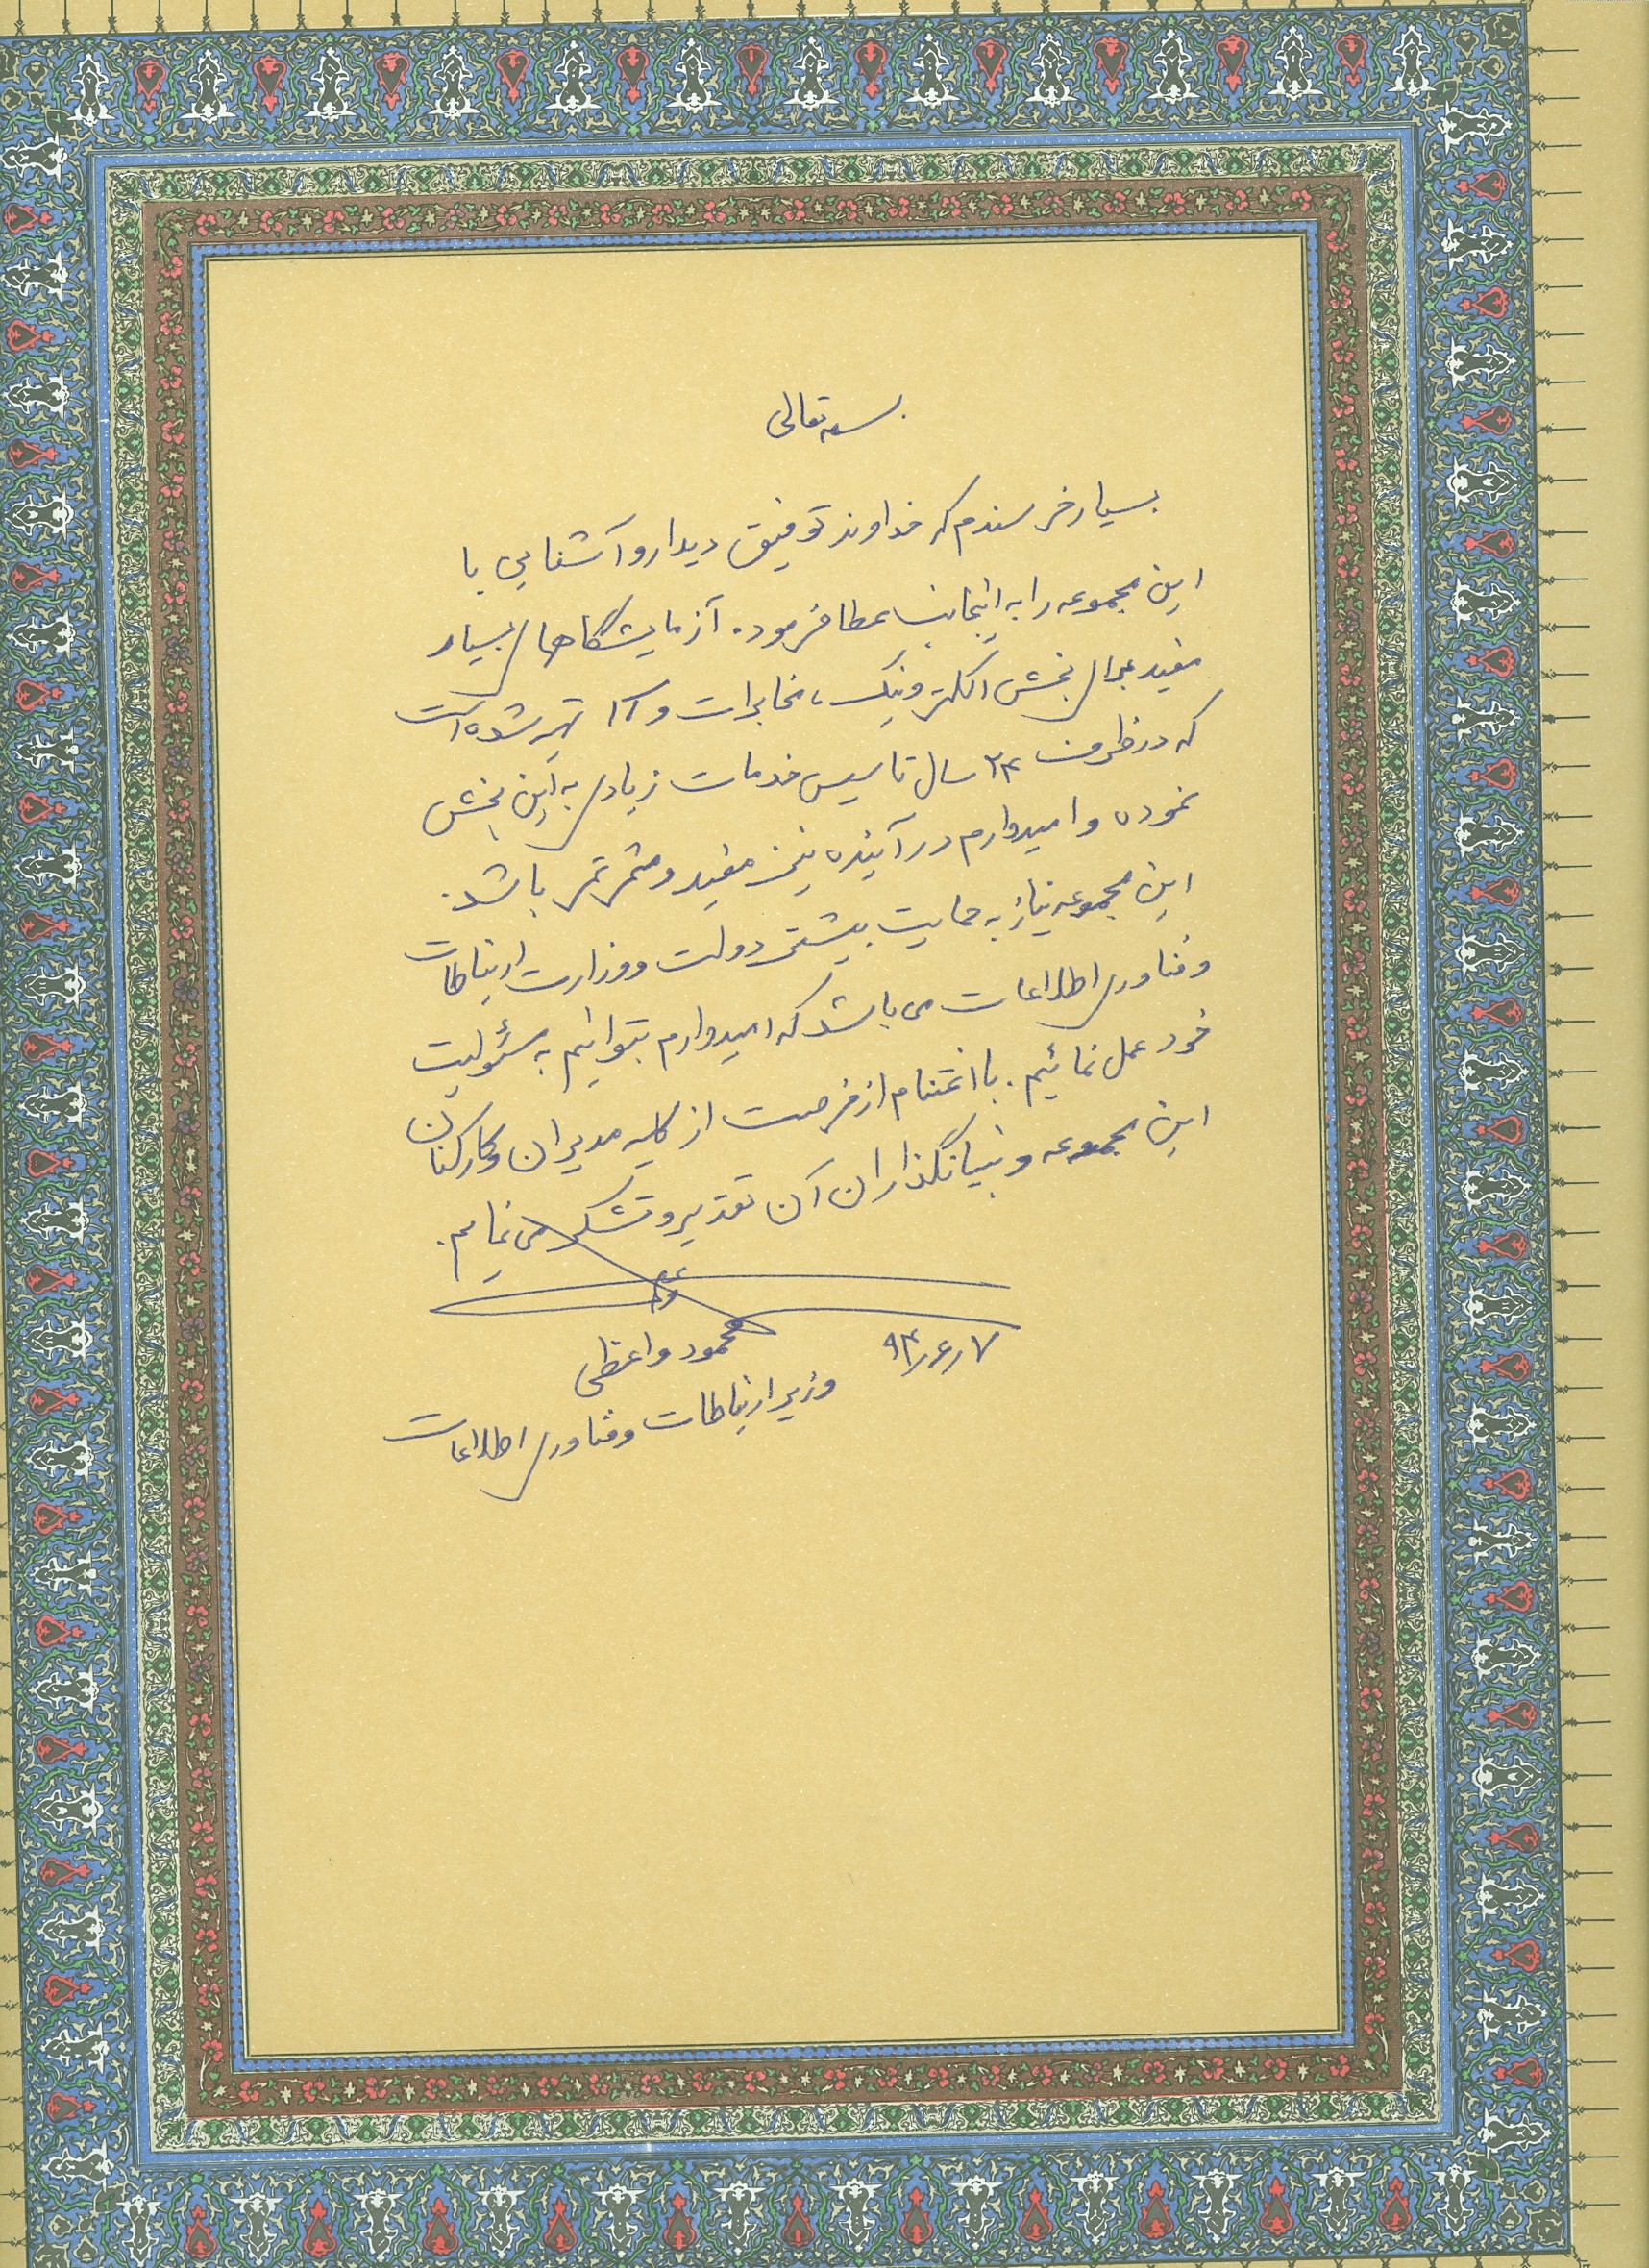 بسمه تعالی
بسیار خرسندم که خداوند توفیق دیدار و آشنایی با
این مجموعه را به اینجانب عطا فرمود. آزمایشگاههای بسیار
مفید برای بخش الکترونیک، مخابرات و IT تهیه شده است
که در ظرف ۲۴ سال تاسیس خدمات زیادی به این بخش
نموده و امیدوارم در آینده نیز مفید و مثمرثمر باشد.
این مجموعه نیاز به حمایت بیشتر دولت و وزارت ارتباطات
و فناوری اطلاعات می باشد که امیدوارم بتوانیم به مسئولیت
خود عمل نمائیم. با اغتنام از فرصت از کلیه مدیران و کارکنان
این مجموعه و بنیانگذاران آن تقدیر و تشکر می نمایم.
محمود واعظی
۹۴/۶/۷
وزیر ارتباطات و فناوری اطلاعات